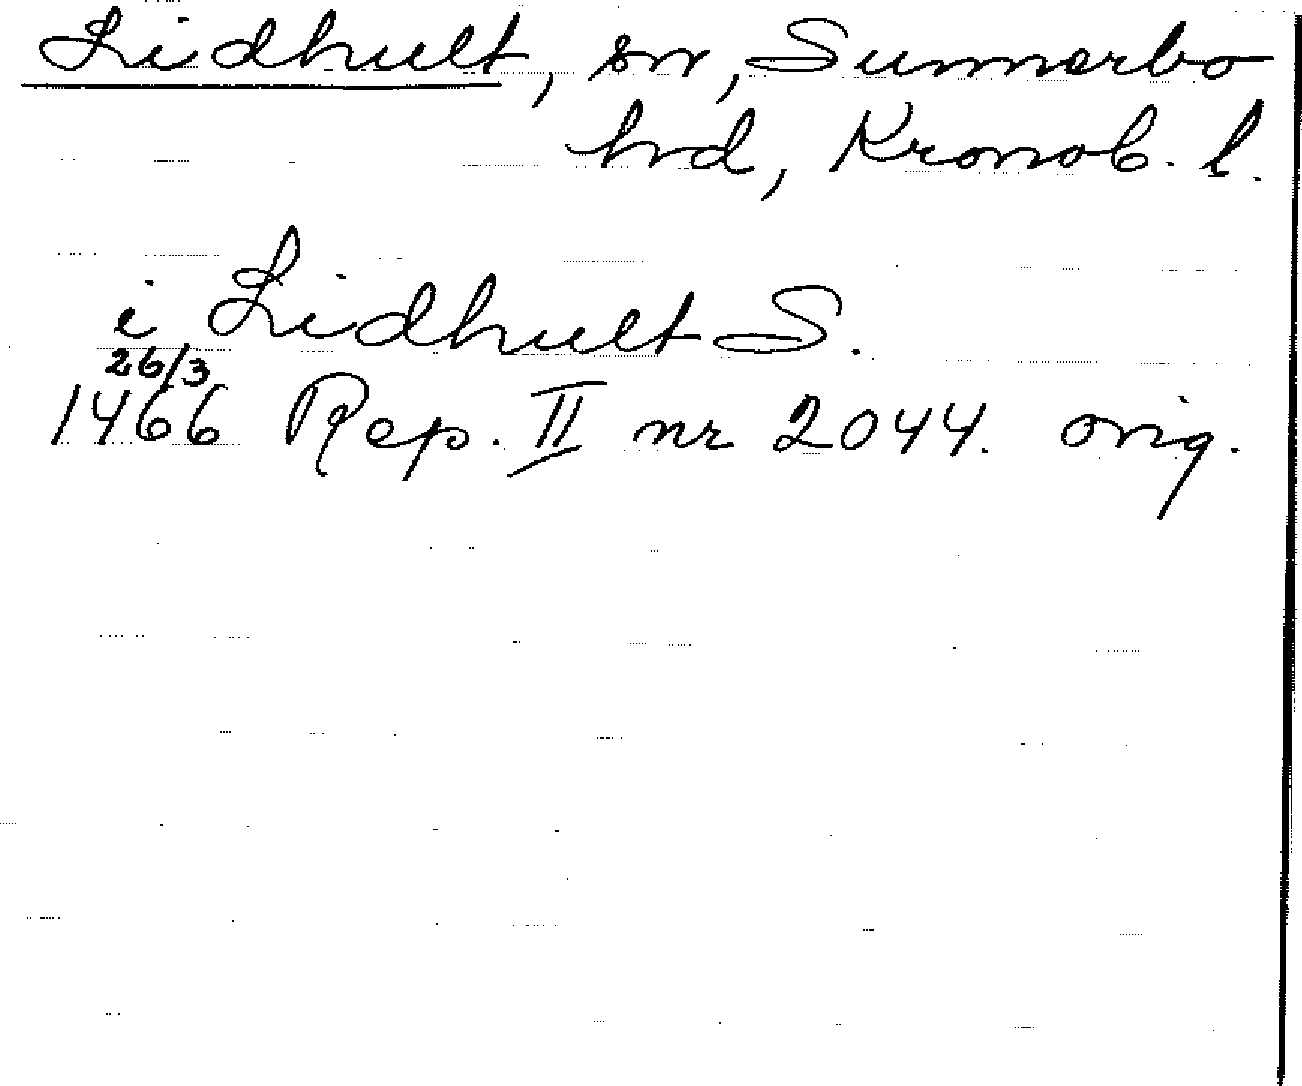 Lidhult, sn, Sunnerbo
hrd, Kronob. l.
i Lidhult S.
26/3
1466 Rep. II nr 2044. orig.